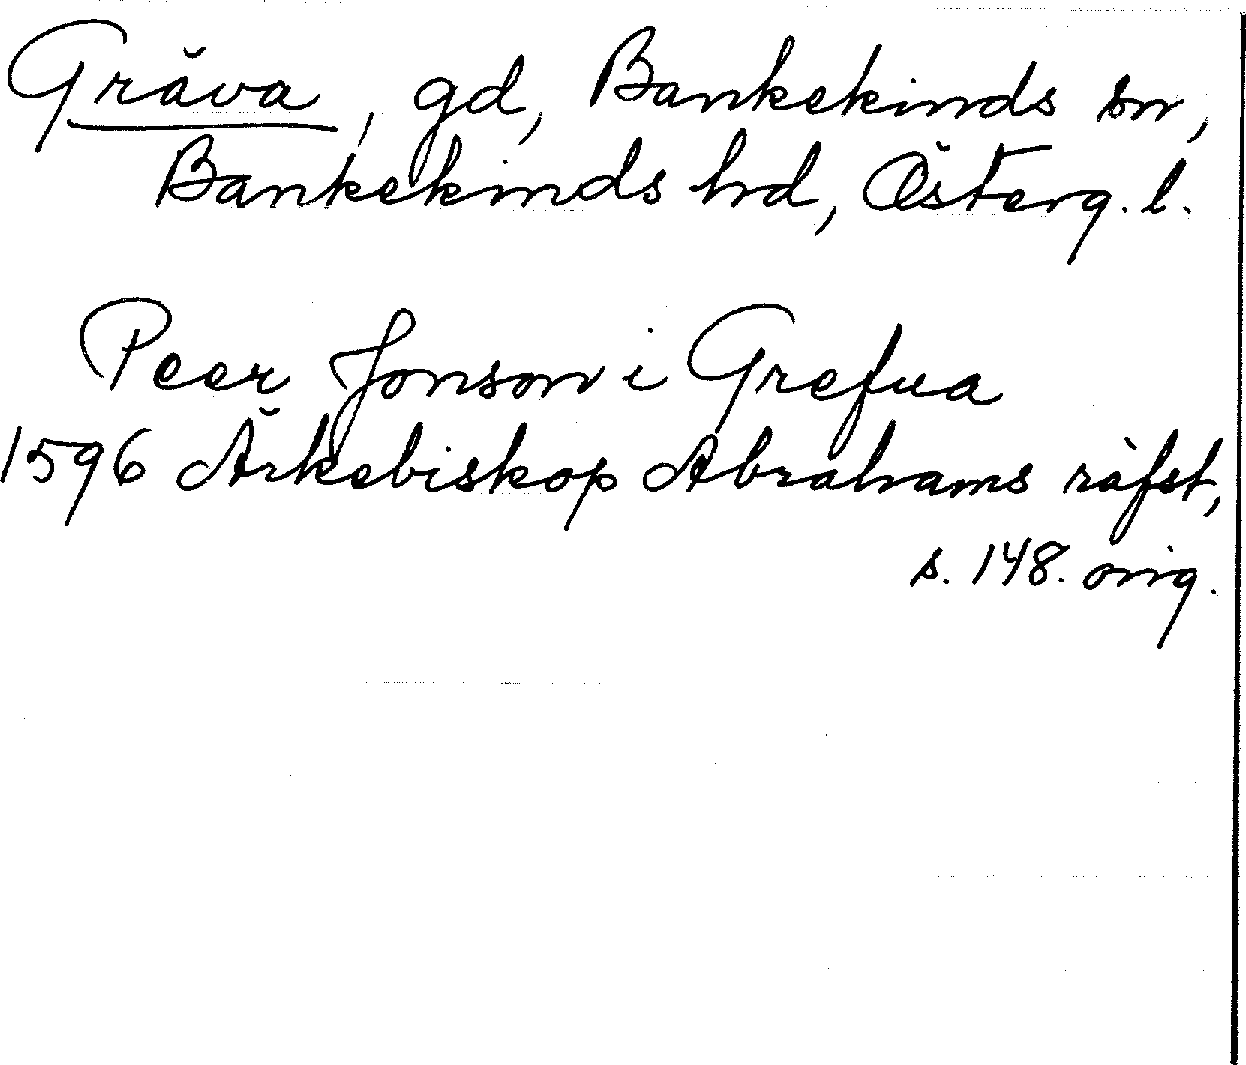 Gräva, gd, Bankekinds sn,
Bankekinds hd, Österg. l.
Peer Jonson i Grefua
1596 Ärkebiskop Abrahams räfst,
s. 148. orig.